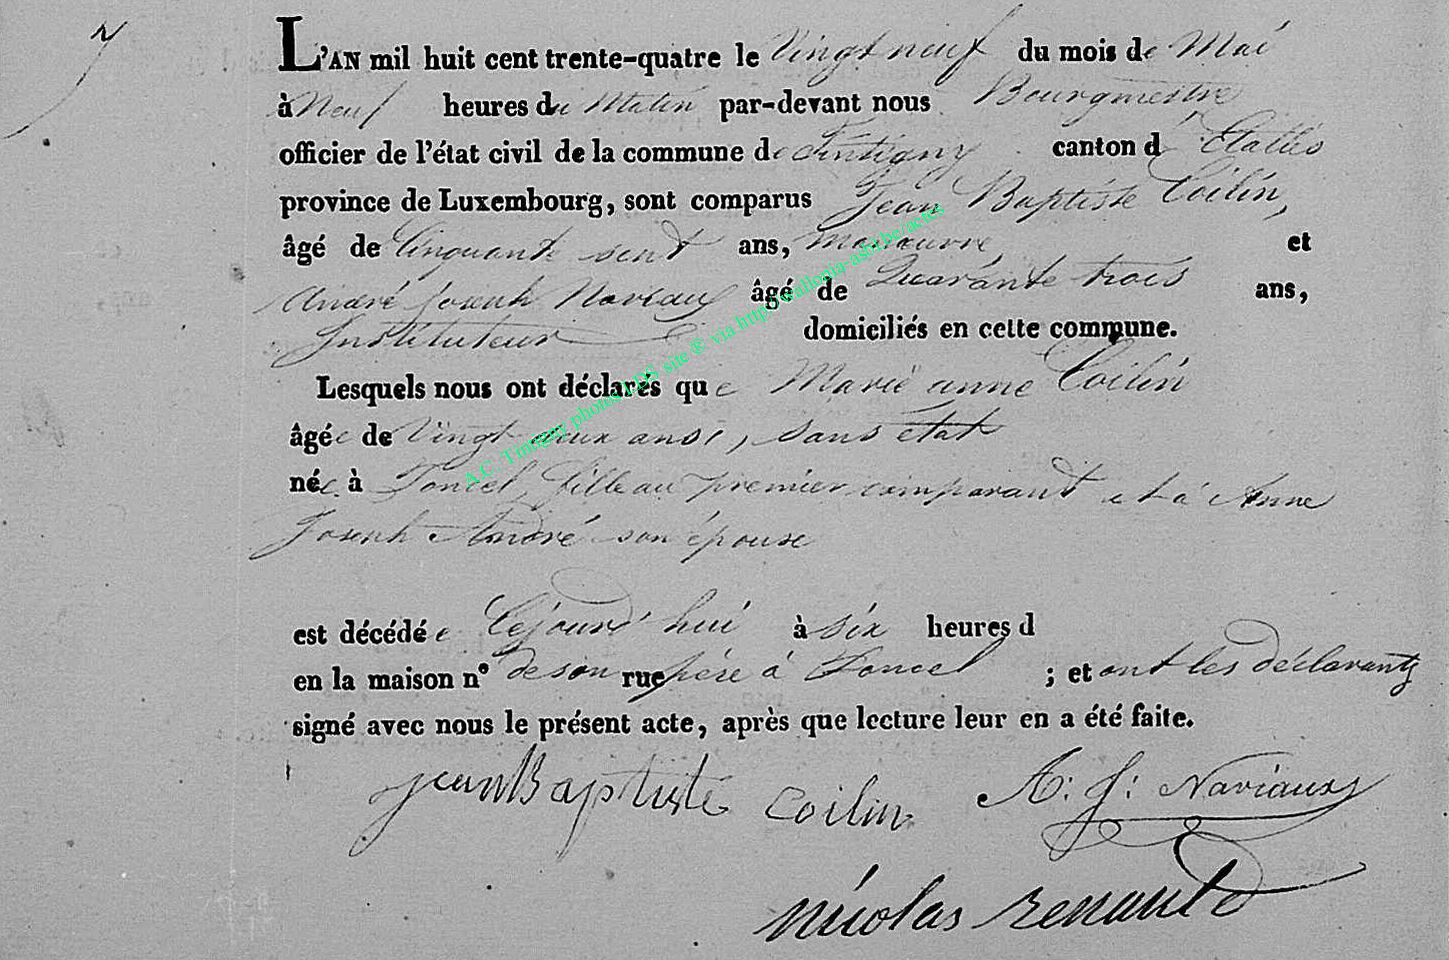 7
L'AN mil huit cent trente-quatre le Vingt neuf du mois de Mai
à Neuf heures du Matin par-devant nous Bourgmestre
officier de l'état civil de la commune de Tintigny canton d'Etalle
province de Luxembourg, sont comparus Jean Baptiste Coilin,
âgé de Cinquante sept ans, manoeuvre et
André Joseph Naviaux âgé de Quarante trois ans,
Instituteur domiciliés en cette commune.
Lesquels nous ont déclarés que Marie anne Coilin
âgée de Vingt deux ans, sans état
née à Poncel, fille au premier comparant et à Anne
Joseph André son épouse
est décédée Cejourd'hui à six heures d
en la maison n° de son rue père à Poncel ; et ont les déclarants
signé avec nous le présent acte, après que lecture leur en a été faite.
jean Baptiste Coilin A: J: Naviaux
nicolas renauld
A.C. Tintigny photos LDS site ® via http://wallonia-asbl.be/actes